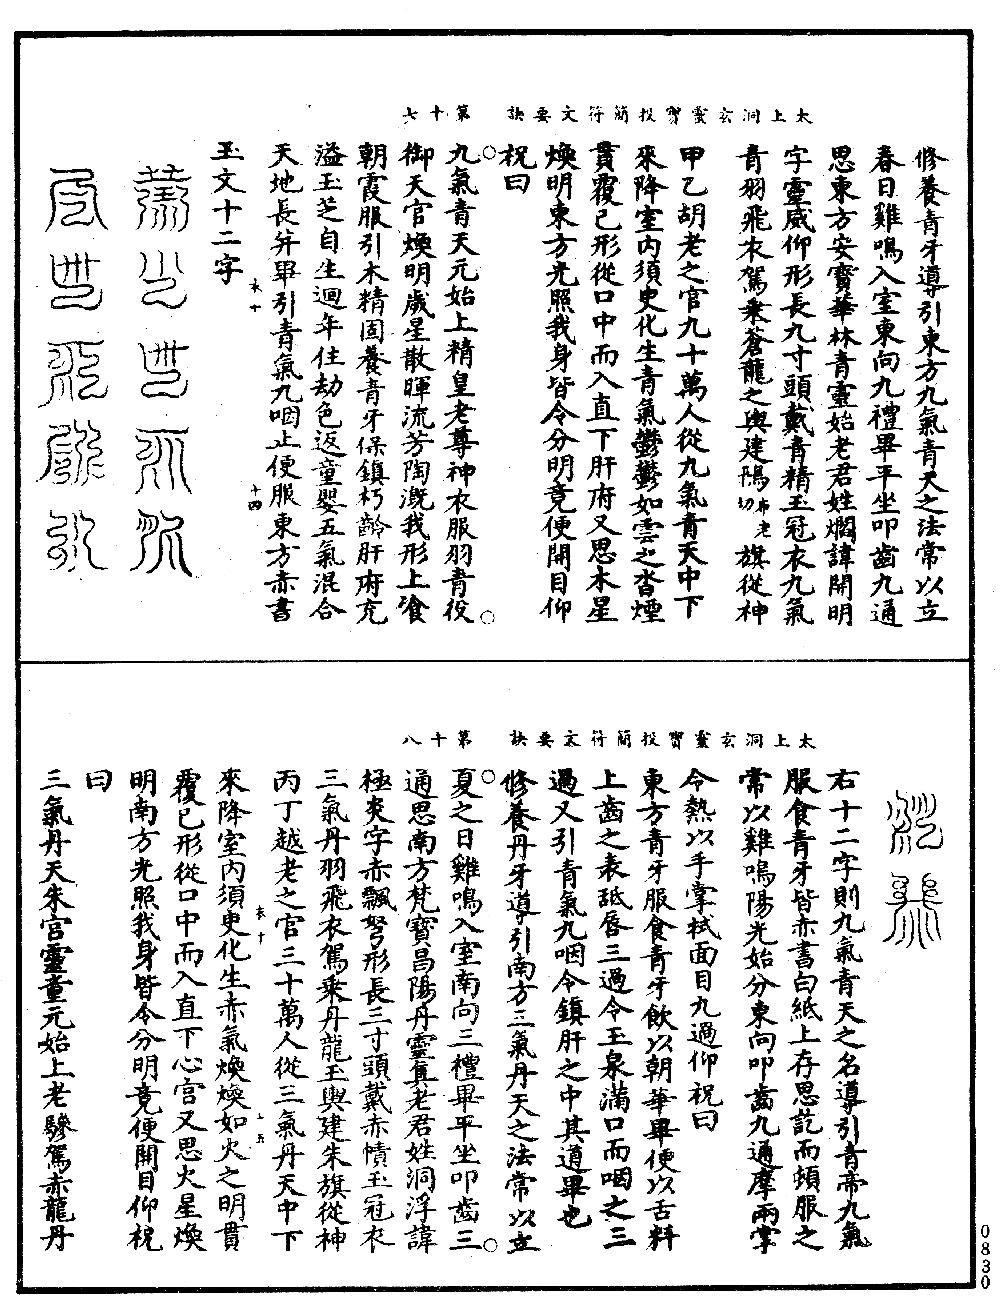 太上洞玄靈寶投簡符文要訣　第十七
修養青牙導引東方九氣青天之法常以立
春日雞鳴入室東向九禮畢平坐叩齒九通
思東方安寶華林青靈始老君姓閻諱開明
字靈威仰形長九寸頭戴青精玉冠衣九氣
青羽飛衣駕乘蒼龍之輿建鶉旗從神
甲乙胡老之官九十萬人從九氣青天中下
來降室內須臾化生青氣鬱鬱如雲之沓煙
貫覆已形從口中而入直下肝府又思木星
煥明東方光照我身皆令分明竟便開目仰
祝曰
九氣青天元始上精皇老尊神衣服羽青役
御天官煥明歲星散暉流芳陶溉我形上飡
朝霞服引木精固養青牙保鎮朽齡肝府充
溢玉芝自生迴年住劫色返童嬰五氣混合
天地長并畢引青氣九咽止便服東方赤書
玉文十二字
衣十
十四
太上洞玄靈寶投簡符文要訣　第十八
右十二字則九氣青天之名導引青帝九氣
服食青牙皆赤書白紙上存思訖而頓服之
常以雞鳴陽光始分東向叩齒九通摩兩掌
令熱以手掌拭面目九過仰祝曰
東方青牙服食青牙飲以朝華畢便以舌料
上齒之表舐唇三過令玉泉滿口而咽之三
過又引青氣九咽令鎮肝之中其道畢也
修養丹牙導引南方三氣丹天之法常以立
夏之日雞鳴入室南向三禮畢平坐叩齒三
通思南方梵寶昌陽丹靈真老君姓洞浮諱
極炎字赤飄弩形長三寸頭戴赤幘玉冠衣
三氣丹羽飛衣駕乘丹龍玉輿建朱旗從神
丙丁越老之官三十萬人從三氣丹天中下
衣十
十五
來降室內須臾化生赤氣煥煥如火之明貫
覆已形從口中而入直下心宮又思火星煥
明南方光照我身皆令分明竟便開目仰祝
曰
三氣丹天朱宮靈童元始上老驂駕赤龍丹
0830